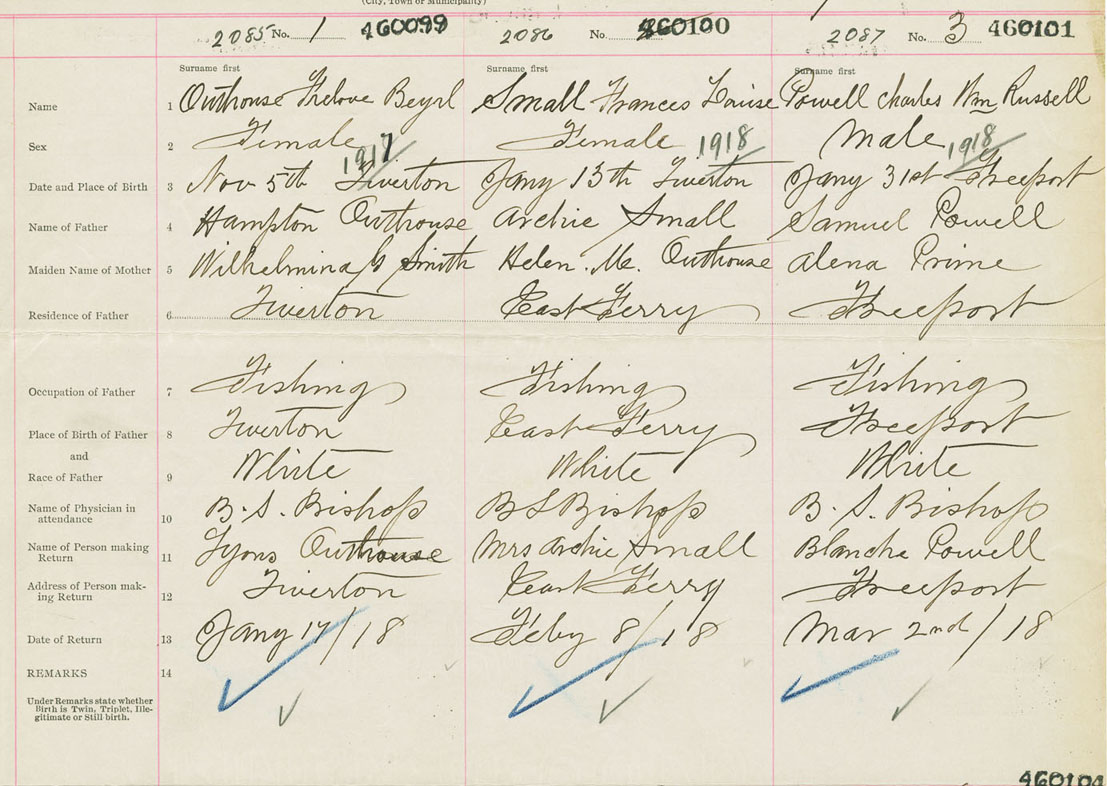 (City, Town or Municipality)
2085 No. 1 460099 2086 No. 460100 2087 No. 3 460101
Surname first Surname first Surname first
Name 1 Outhouse Frelove Beyrl Small Frances Louise Powell Charles Wm Russell
Sex 2 Female Female Male
1917 1918 1918
Date and Place of Birth 3 Nov 5th Tiverton Jany 13th Tiverton Jany 31st Freeport
Name of Father 4 Hampton Outhouse Archie Small Samuel Powell
Maiden Name of Mother 5 Wilhelmina G Smith Helen. M. Outhouse Alena Prime
Residence of Father 6 Tiverton East Ferry Freeport
Occupation of Father 7 Fishing Fishing Fishing
Place of Birth of Father 8 Tiverton East Ferry Freeport
and
Race of Father 9 White White White
Name of Physician in
attendance 10 B. S. Bishop B S Bishop B. S. Bishop
Name of Person making
Return 11 Lyons Outhouse Mrs Archie Small Blanche Powell
Address of Person mak-
ing Return 12 Tiverton East Ferry Freeport
Date of Return 13 Jany 17/18 Feby 8/18 Mar 2nd/18
REMARKS 14
Under Remarks state whether
Birth is Twin, Triplet, Ille-
gitimate or Still birth.
460104